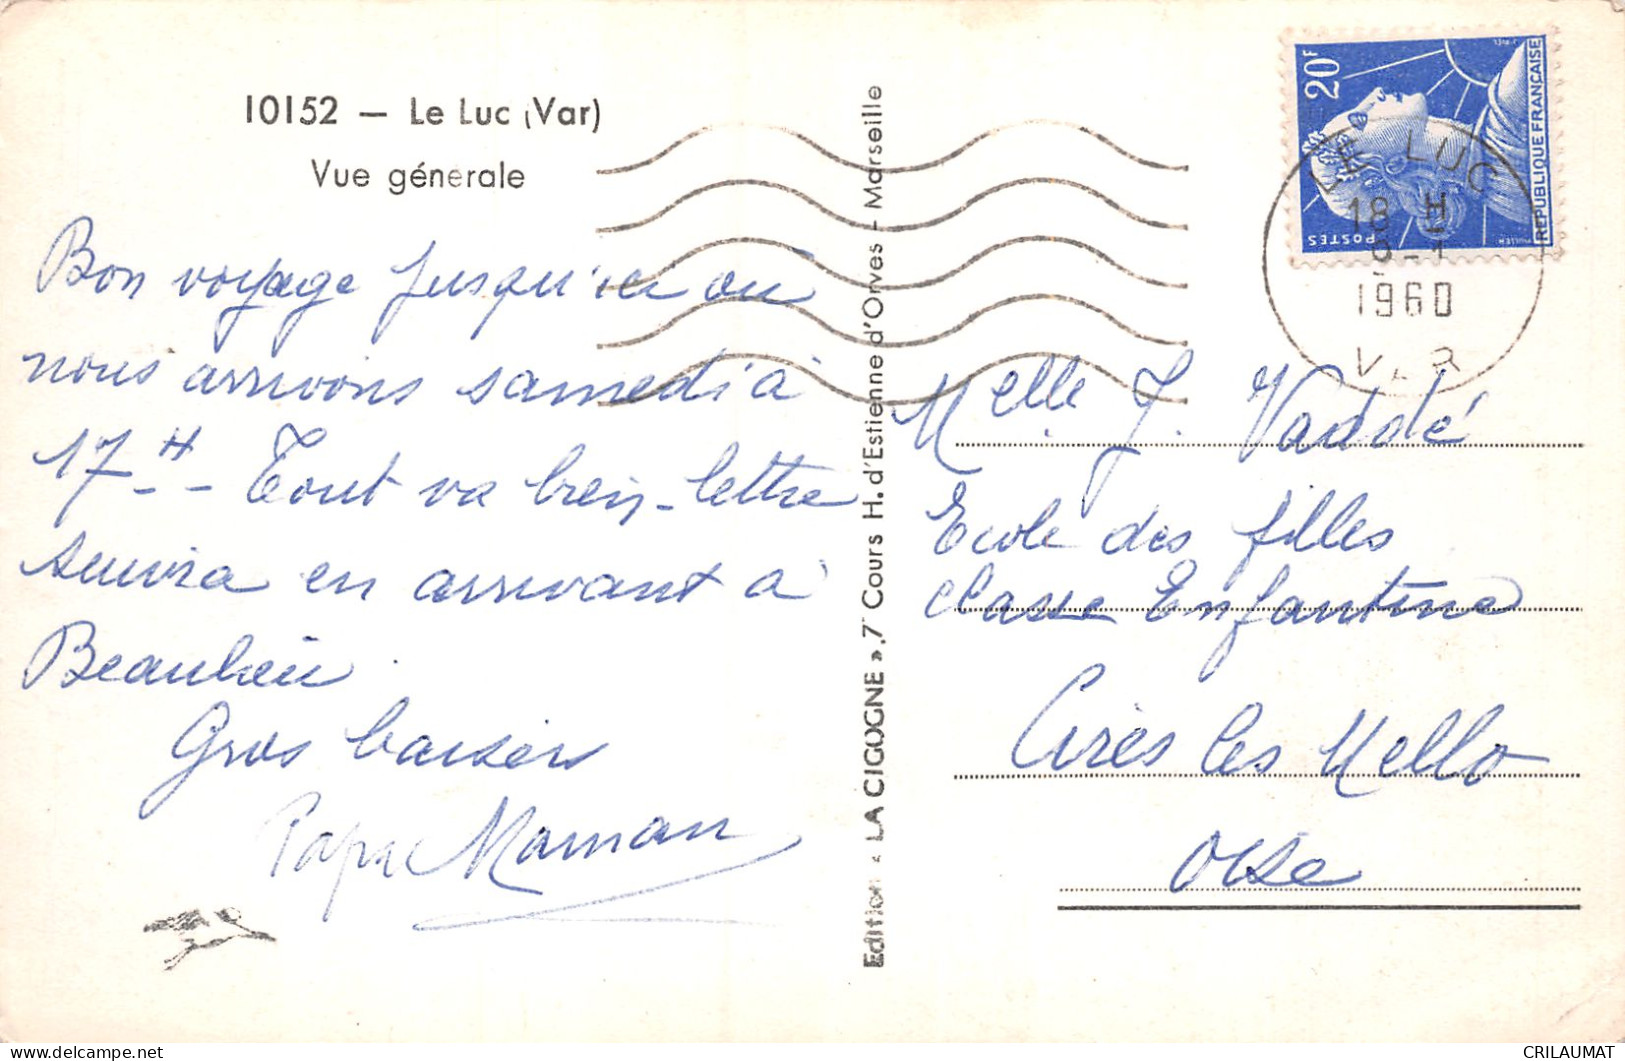 10152 — Le Luc (Var)
Vue générale
Bon voyage jusqu'ici où
nous arrivons samedi à
17H - Tout va bien - lettre
suivra en arrivant à
Beaulieu
Gros baisers
Papa Maman
Edition « LA CIGOGNE », 7 Cours H. d'Estienne d'Orves - Marseille
20F
POSTES
REPUBLIQUE FRANÇAISE
MULLER
LE LUC
18 H
1960
VAR
Melle J. Vaddé
Ecole des filles
classe Enfantine
Cires les Mello
Oise
CRILAUMAT